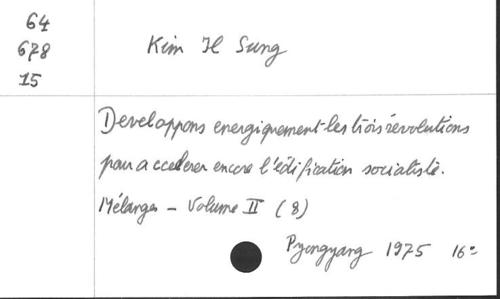 64
678
15
Kim Il Sung
Developpons energiquement les trois révolutions
pour accelerer encore l'édification socialiste.
Mélanges - Volume II (8)
Pyongyang 1975 16°